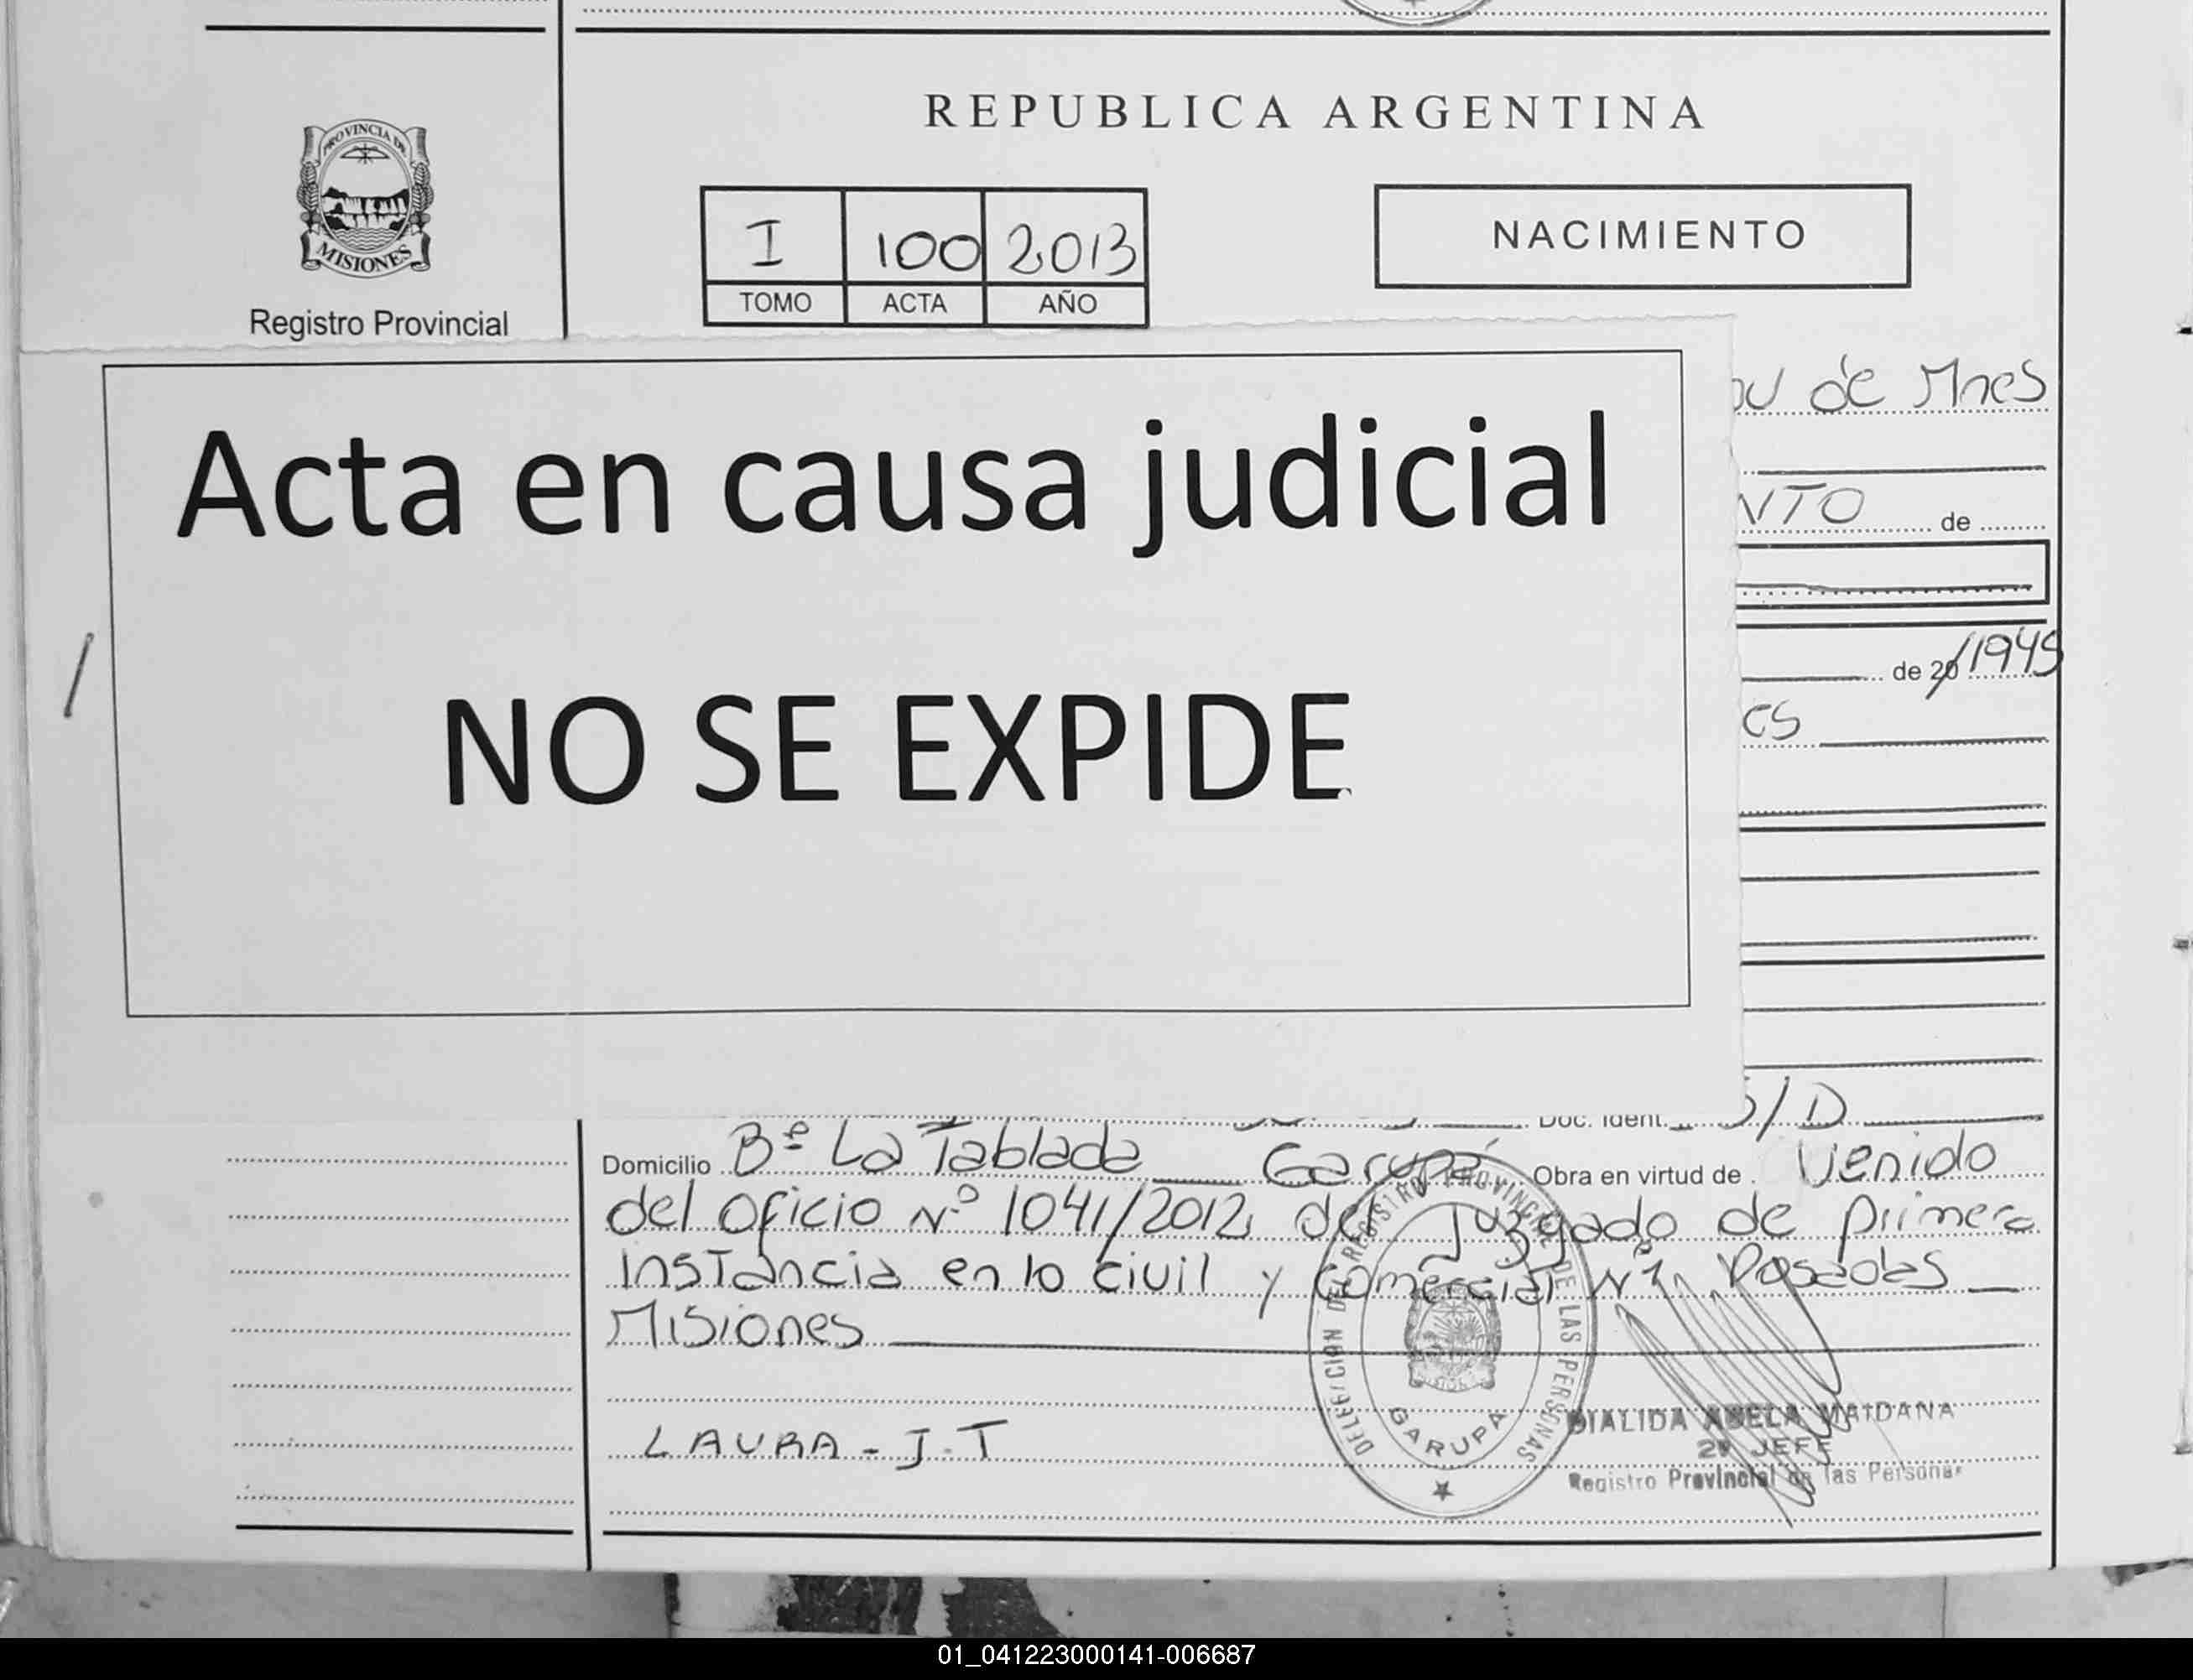 REPUBLICA ARGENTINA
PROVINCIA DE
MISIONES
Registro Provincial
I 100 2013
TOMO ACTA AÑO
NACIMIENTO
de Mnes
Acta en causa judicial
NTO de
de 20/1945
NO SE EXPIDE
es
Doc. Ident. S/D
Domicilio Bº La Tablada Garupá Obra en virtud de Venido
del oficio Nº 1041/2012, del Juzgado de primera
instancia en lo civil y Comercial Nº 1 Posadas
Misiones
DELEGACION DEL REGISTRO PROVINCIAL DE LAS PERSONAS
GARUPA
LAURA - J.T
ADELA MAIDANA
JEFE
Registro Provincial de las Personas
01_041223000141-006687